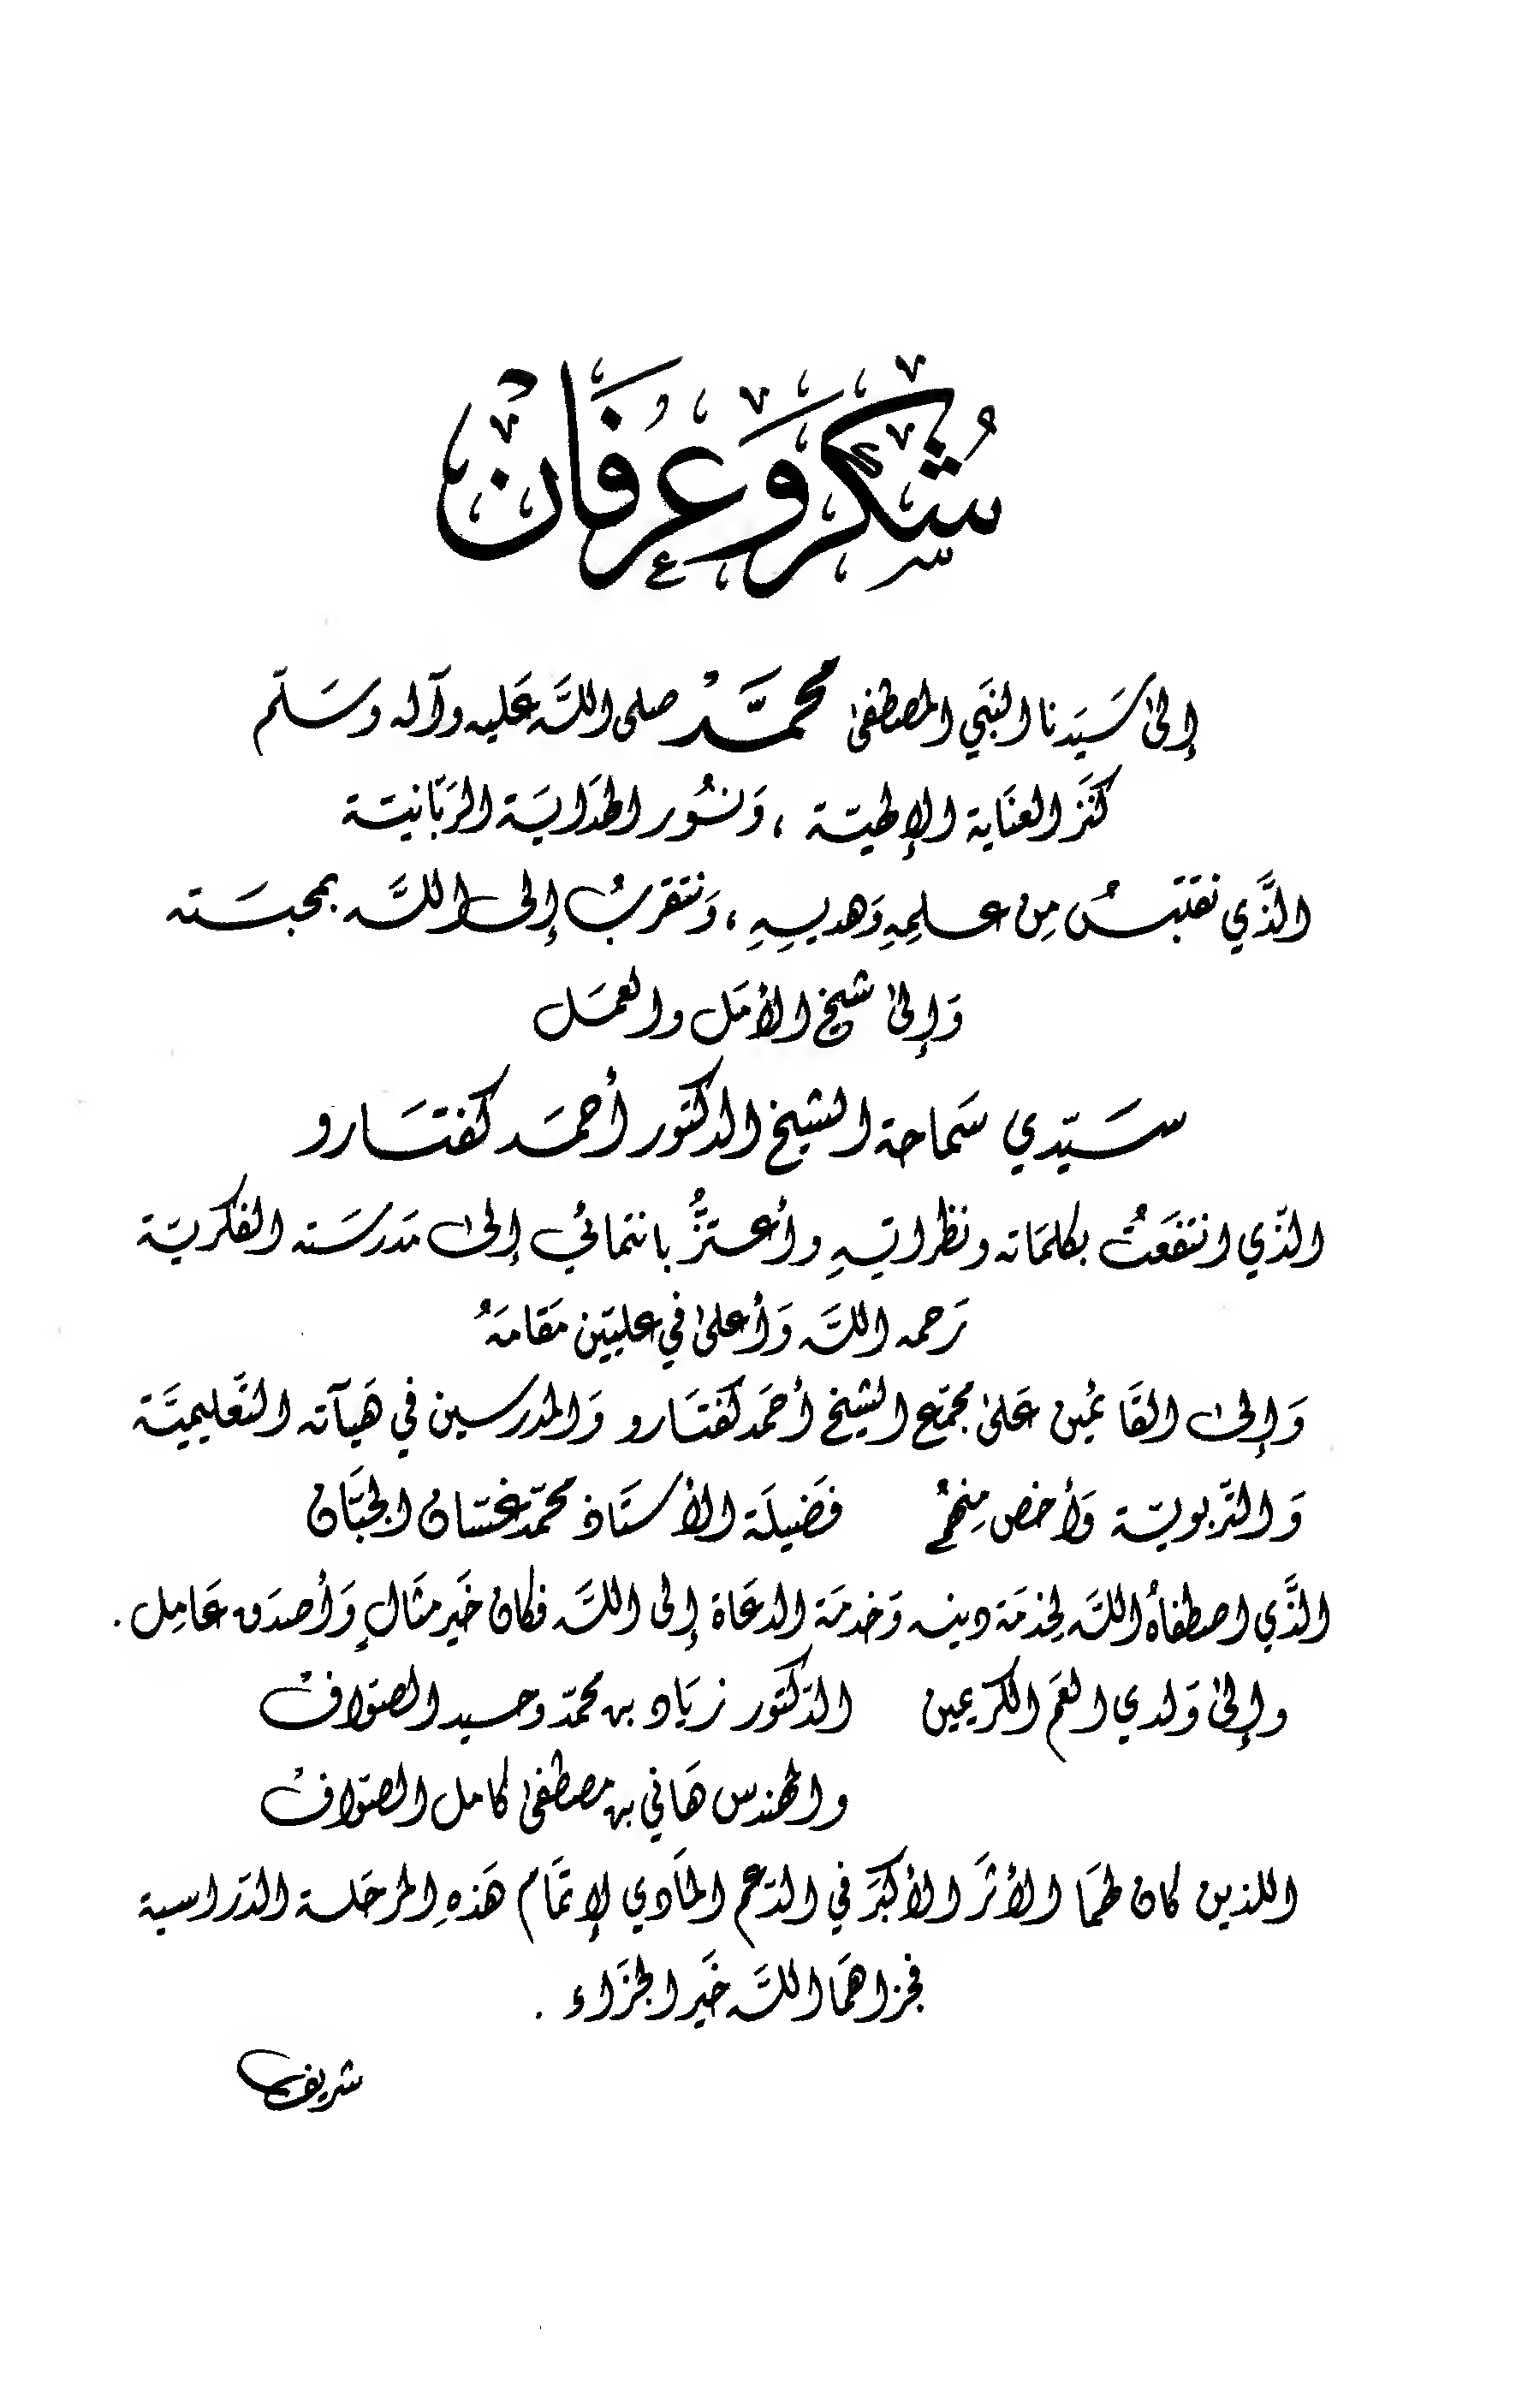 شُكرٌ وَعِرفَان
إلىٰ سَيّدنا النبَي المصطفىٰ محمَّدْ صلى اللَّه عَليه وآله وسَلّم
كنَز العنَاية الإلهيّة ، وَنُور الهدَايَة الربّانيّة
الذَّي نقتبسُ مِن علمِهِ وَهديهِ ، وَنتقربُ إلى اللَّه بمحبَته
وَإلىٰ شيخ الأمَل والعمَل
سَيّدي سَماحة الشيخ الدكتور أحمَد كفتَارو
الذّي انتفَعتُ بكلمَاته ونظراتهِ وأعتزُّ بانتمائي إلىٰ مَدرسَته الفكريّة
رَحمه اللَّه وَأعلىٰ في عليّين مَقامَهُ
وَإلىٰ القَائمُين عَلىٰ مجمّع الشيخ أحمَد كفتَارو وَالمدرسين في هَيآته التَّعليميَّة
وَالتَّربويّة وَأخص مِنهمُ فضَيلَة الأستَاذ محمّد غسّان الجبّان
الذَّي اصطفاهُ اللَّه لخدمَة دينه وَخدمَة الدعَاة إلى اللَّه فكان خَير مثَالٍ وَأصدَق عَامِل .
وإلىٰ وَلدي العَم الكرَيمين الدّكتور زيَاد بن محمّد وحيد الصوّاف
والمهندس هَاني بن مصطفىٰ كامل الصوّاف
اللذين كان لهمَا الأثرَ الأكبَر في الدّعم المَادي لإتمَام هَذهِ المرحَلة الدّراسية
فجزاهمَا اللَّه خَير الجزَاء .
شريف